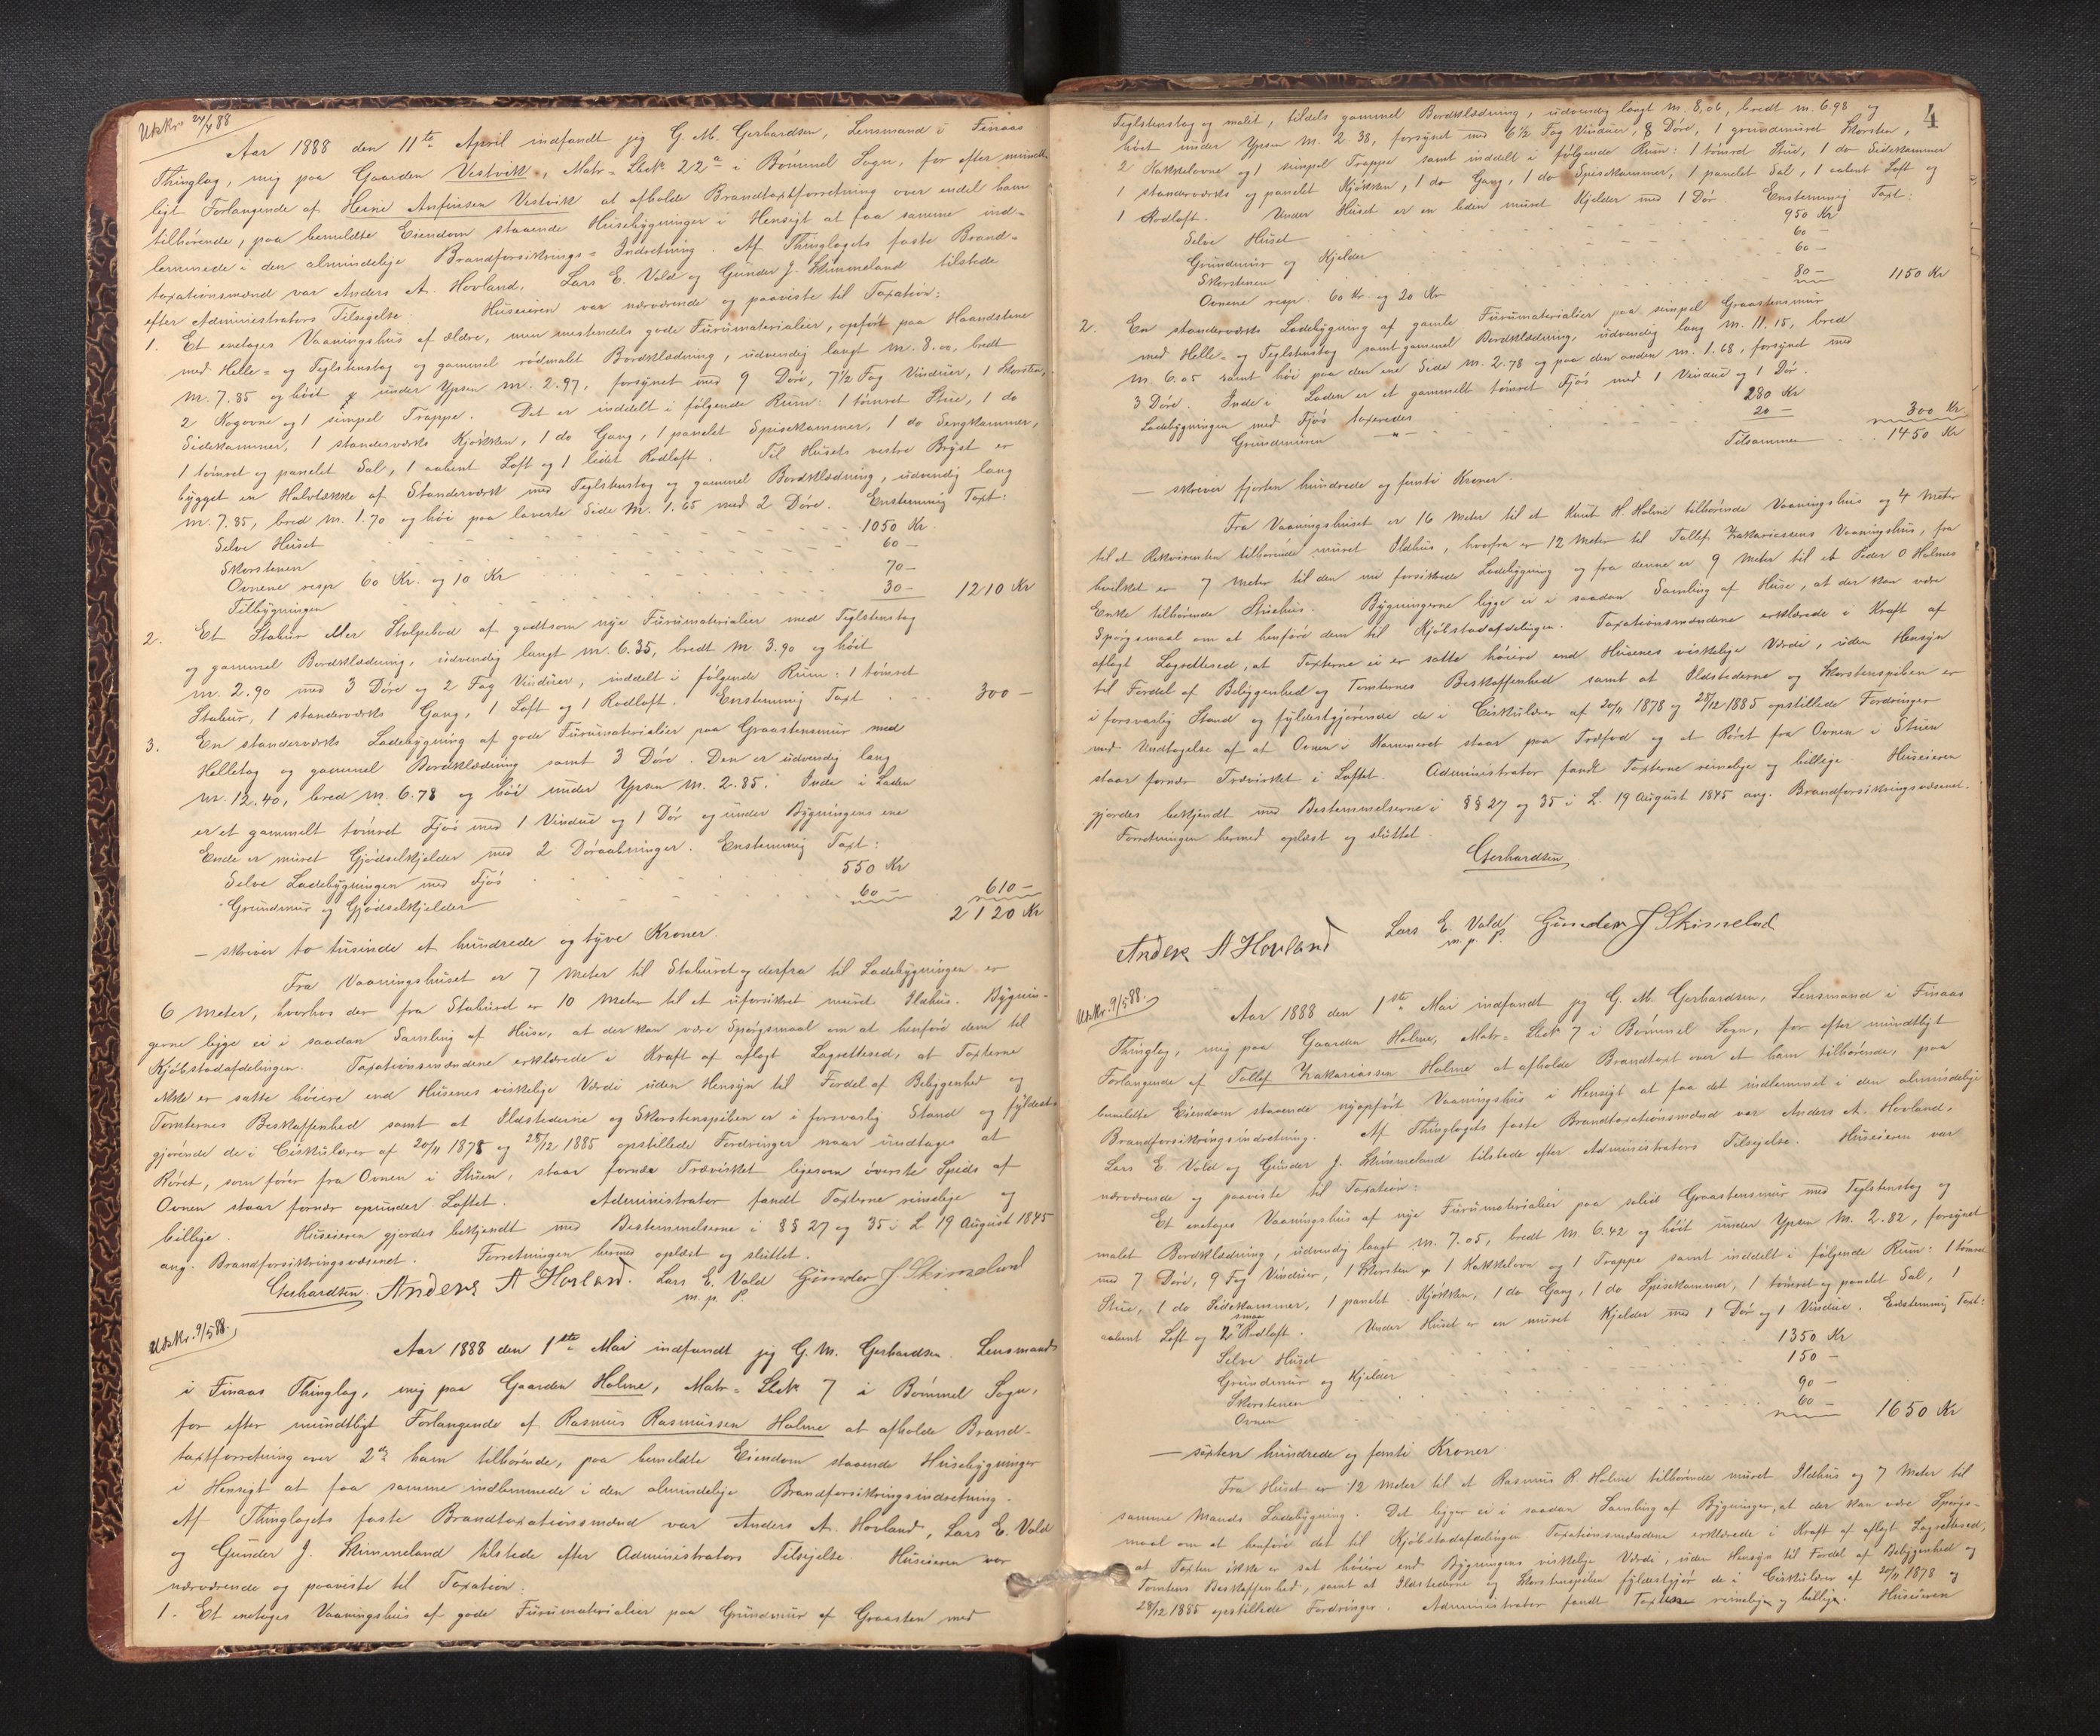 Utskr. 24/4 88
Aar 1888 den 11te April indfandt jeg G. M. Gerhardsen, Lensmand i Finaas
Thinglag, mig paa Gaarden Vestvik, Matr= Løb 22a i Bømmel Sogn, for efter mundt=
ligt Forlangende af Anfinsen Vestvik at afholde Brandtaxtforretning over endel ham
tilhørende, paa bemeldte Eiendom staaende Husebygninger i Hensigt at faa samme ind=
lemmede i den almindelige Brandforsikrings= Indretning. Af Thinglagets faste Brand=
taxationsmænd var Anders A. Hovland, Lars E. Vold og Gunder J. Skimmeland tilstede
efter Administrators Tilsigelse. Huseieren var nærværende og paaviste til Taxation:
1. Et enetages Vaaningshus af ældre, men mestendels gode Furumaterialier, opført paa Haandstene
med Helle= og Teglstenstag og gammel rødmalet Bordklædning, udvendig langt M. 8.00, bredt
M. 7.85 og høit under Ypsen M. 2.97, forsynet med 9 Døre, 7½ Fag Vinduer, 1 Skorsten,
2 Kogovne og 1 simpel Trappe. Det er inddelt i følgende Rum: 1 tømret Stue, 1 do
Sidekammer, 1 standerværks Kjøkken, 1 do Gang, 1 panelet Spisekammer, 1 do Sengkammer,
1 tømret og panelet Sal, 1 aabent Loft og 1 lidet Rodloft. Til Husets vestre Bryst er
bygget en Halvtække af Standerværk med Teglstenstag og gammel Bordklædning, udvendig lang
M. 7.85, bred M. 1.70 og høi paa laveste Side M. 1.65 med 2 Døre. Enstemmig Taxt:
Selve Huset 1050 Kr.
Skorstenen 60 —
Ovnene resp 60 Kr. og 10 Kr 70 —
Tilbygningen 30 — 1210 Kr
2. Et Stabur eller Stolpebod af godtsom nye Furumaterialier med Teglstenstag
og gammel Bordklædning, udvendig langt M. 6.35, bredt M. 3.90 og høit
M. 2.90 med 3 Døre og 2 Fag Vinduer, inddelt i følgende Rum: 1 tømret
Stabur, 1 standerværks Gang, 1 Loft og 1 Rodloft. Enstemmig Taxt 300 —
3. En standerværks Ladebygning af gode Furumaterialier paa Graastensmur med
Helletag og gammel Bordklædning samt 3 Døre. Den er udvendig lang
M. 12.40, bred M. 6.78 og høi under Ypsen M. 2.85. Inde i Laden
er et gammelt tømret Fjøs med 1 Vindue og 1 Dør og under Bygningens ene
Ende er muret Gjødselkjelder med 2 Døraabninger. Enstemmig Taxt:
Selve Ladebygningen med Fjøs 550 Kr
Grundmur og Gjødselkjelder 60 — 610 —
2120 Kr
— skriver to tusinde et hundrede og tyve Kroner.
Fra Vaaningshuset er 7 Meter til Staburet og derfra til Ladebygningen er
6 Meter, hvorhos der fra Staburet er 10 Meter til et uforsikret muret Ildhus. Bygnin=
gerne ligge ei i saadan Samling af Huse, at der kan være Spørgsmaal om at henføre dem til
Kjøbstadafdelingen. Taxationsmændene erklærede i Kraft af aflagt Lagrettesed, at Taxterne
ikke er satte høiere end Husenes virkelige Værdi uden Hensyn til Fordel af Beliggenhed og
Tomternes Beskaffenhed samt at Ildstederne og Skorstenspiben er i forsvarlig Stand og fyldest=
gjørende de i Cirkulærer af 20/11 1878 og 28/12 1885 opstillede Fordringer naar undtages at
Røret, som fører fra Ovnen i Stuen, staar fornær Trævirket ligesom øverste Speids af
Ovnen staar fornær opunder Loftet. Administrator fandt Taxterne rimelige og
billige. Huseieren gjordes bekjendt med Bestemmelserne i §§ 27 og 35 i L. 19 August 1845
ang. Brandforsikringsvæsenet. Forretningen hermed oplæst og sluttet.
Gerhardsen. Anders A Hovland. Lars E. Vold Gunder J. Skimeland
m. p. P
Utskr. 9/5 88.
Aar 1888 den 1ste Mai indfandt jeg G. M. Gerhardsen Lensmand
i Finaas Thinglag, mig paa Gaarden Holme, Matr= Løb 7 i Bømmel Sogn,
for efter mundtligt Forlangende af Rasmus Rasmussen Holme at afholde Brand=
taxtforretning over 2de ham tilhørende, paa bemeldte Eiendom staaende Husebygninger
i Hensigt at faa samme indlemmede i den almindelige Brandforsikringsindretning.
Af Thinglagets faste Brandtaxationsmænd var Anders A. Hovland, Lars E. Vold
og Gunder J. Skimmeland tilstede efter Administrators Tilsigelse. Huseieren var
nærværende og paaviste til Taxation:
1. Et enetages Vaaningshus af gode Furumaterialier paa Grundmur af Graasten med
4
Teglstenstag og malet, tildels gammel Bordklædning, udvendig langt M. 8,06, bredt M. 6.98 og
høit under Ypsen M. 2.38, forsynet med 6½ Fag Vinduer, 8 Døre, 1 grundmuret Skorsten,
2 Kakkelovne og 1 simpel Trappe samt inddelt i følgende Rum: 1 tømret Stue, 1 do Sidekammer
1 standerværks og panelet Kjøkken, 1 do Gang, 1 do Spisekammer, 1 panelet Sal, 1 aabent Loft og
1 Rodloft. Under Huset er en liden muret Kjelder med 1 Dør Enstemmig Taxt:
Selve Huset 950 Kr
Grundmur og Kjelder 60 —
Skorstenen 60 —
Ovnene resp. 60 Kr. og 20 Kr 80 — 1150 Kr
2. En standerværks Ladebygning af gamle Furumaterialier paa simpel Graastensmur
med Helle= og Teglstenstag samt gammel Bordklædning, udvendig lang M. 11.15, bred
M. 6.05 samt høi paa den ene Side M. 2.78 og paa den anden M. 1.68, forsynet med
3 Døre. Inde i Laden er et gammelt tømret Fjøs med 1 Vindue og 1 Dør.
Ladebygningen med Fjøs taxeredes 280 Kr
Grundmuren —"— 20 — 300 Kr
Tilsammen 1450 Kr
— skriver fjorten hundrede og femti Kroner.
Fra Vaaningshuset er 16 Meter til et Knut H. Holme tilhørende Vaaningshus og 4 Meter
til et Rekvirenten tilhørende muret Ildhus, hvorfra er 12 Meter til Tollef Zakariassens Vaaningshus, fra
hvilket er 7 Meter til den nu forsikrede Ladebygning og fra denne er 9 Meter til et Peder O Holmes
Enke tilhørende Stuehus. Bygningerne ligge ei i saadan Samling af Huse, at der kan være
Spørgsmaal om at henføre dem til Kjøbstadafdelingen. Taxationsmændene erklærede i Kraft af
aflagt Lagrettesed, at Taxterne ei er satte høiere end Husenes virkelige Værdi, uden Hensyn
til Fordel af Beliggenhed og Tomternes Beskaffenhed samt at Ildstederne og Skorstenspiben er
i forsvarlig Stand og fyldestgjørende de i Cirkulærer af 20/11 1878 og 28/12 1885 opstillede Fordringer
med Undtagelse af at Ovnen i Kammeret staar paa Træfod og at Røret fra Ovnen i Stuen
staar fornær Trævirket i Loftet. Administrator fandt Taxterne rimelige og billige. Huseieren
gjordes bekjendt med Bestemmelserne i §§ 27 og 35 i L. 19 August 1845 ang. Brandforsikringsvæsenet.
Forretningen hermed oplæst og sluttet.
Gerhardsen
Anders A Hovland Lars E. Vold Gunder J Skimelad
m. p. P.
Utskr. 9/5 88.
Aar 1888 den 1ste Mai indfandt jeg G. M. Gerhardsen, Lensmand i Finaas
Thinglag, mig paa Gaarden Holme, Matr= Løb 7 i Bømmel Sogn, for efter mundtligt
Forlangende af Tollef Zakariassen Holme at afholde Brandtaxt over et ham tilhørende, paa
bemeldte Eiendom staaende nyopført Vaaningshus i Hensigt at faa det indlemmet i den almindelige
Brandforsikringsindretning. Af Thinglagets faste Brandtaxationsmænd var Anders A. Hovland,
Lars E Vold og Gunder J. Skimmeland tilstede efter Administrators Tilsigelse. Huseieren var
nærværende og paaviste til Taxation:
Et enetages Vaaningshus af nye Furumaterialier paa solid Graastensmur med Teglstenstag og
malet Bordklædning, udvendig langt M. 7.05, bredt M. 6.42 og høit under Ypsen M. 2.82, forsynet
med 7 Døre, 9 Fag Vinduer, 1 Skorsten 1 Kakkelovn og 1 Trappe samt inddelt i følgende Rum: 1 tømret
Stue, 1 do Sidekammer, 1 panelet Kjøkken, 1 do Gang, 1 do Spisekammer, 1 tømret og panelet Sal, 1
aabent Loft og 2 smaa Rodloft. Under Huset er en muret Kjelder med 1 Dør og 1 Vindue. Enstemmig Taxt:
Selve Huset 1350 Kr
Grundmur og Kjelder 150 —
Skorstenen 90 —
Ovnen 60 — 1650 Kr
— sexten hundrede og femti Kroner.
Fra Huset er 12 Meter til et Rasmus R. Holme tilhørende muret Ildhus og 7 Meter til
samme Mands Ladebygning. Det ligger ei i saadan Samling af Bygninger, at der kan være Spørgs=
maal om at henføre det til Kjøbstadafdelingen. Taxationsmændene erklærede i Kraft af aflagt Lagrettesed,
at Taxten ikke er sat høiere end Bygningens virkelige Værdi, uden Hensyn til Fordel af Beliggenhed og
Tomtens Beskaffenhed, samt at Ildstederne og Skorstenspiben fyldestgjør de i Cirkulærer af 20/11 1878 og
28/12 1885 opstillede Fordringer. Administrator fandt Taxten rimelig og billig. Huseieren